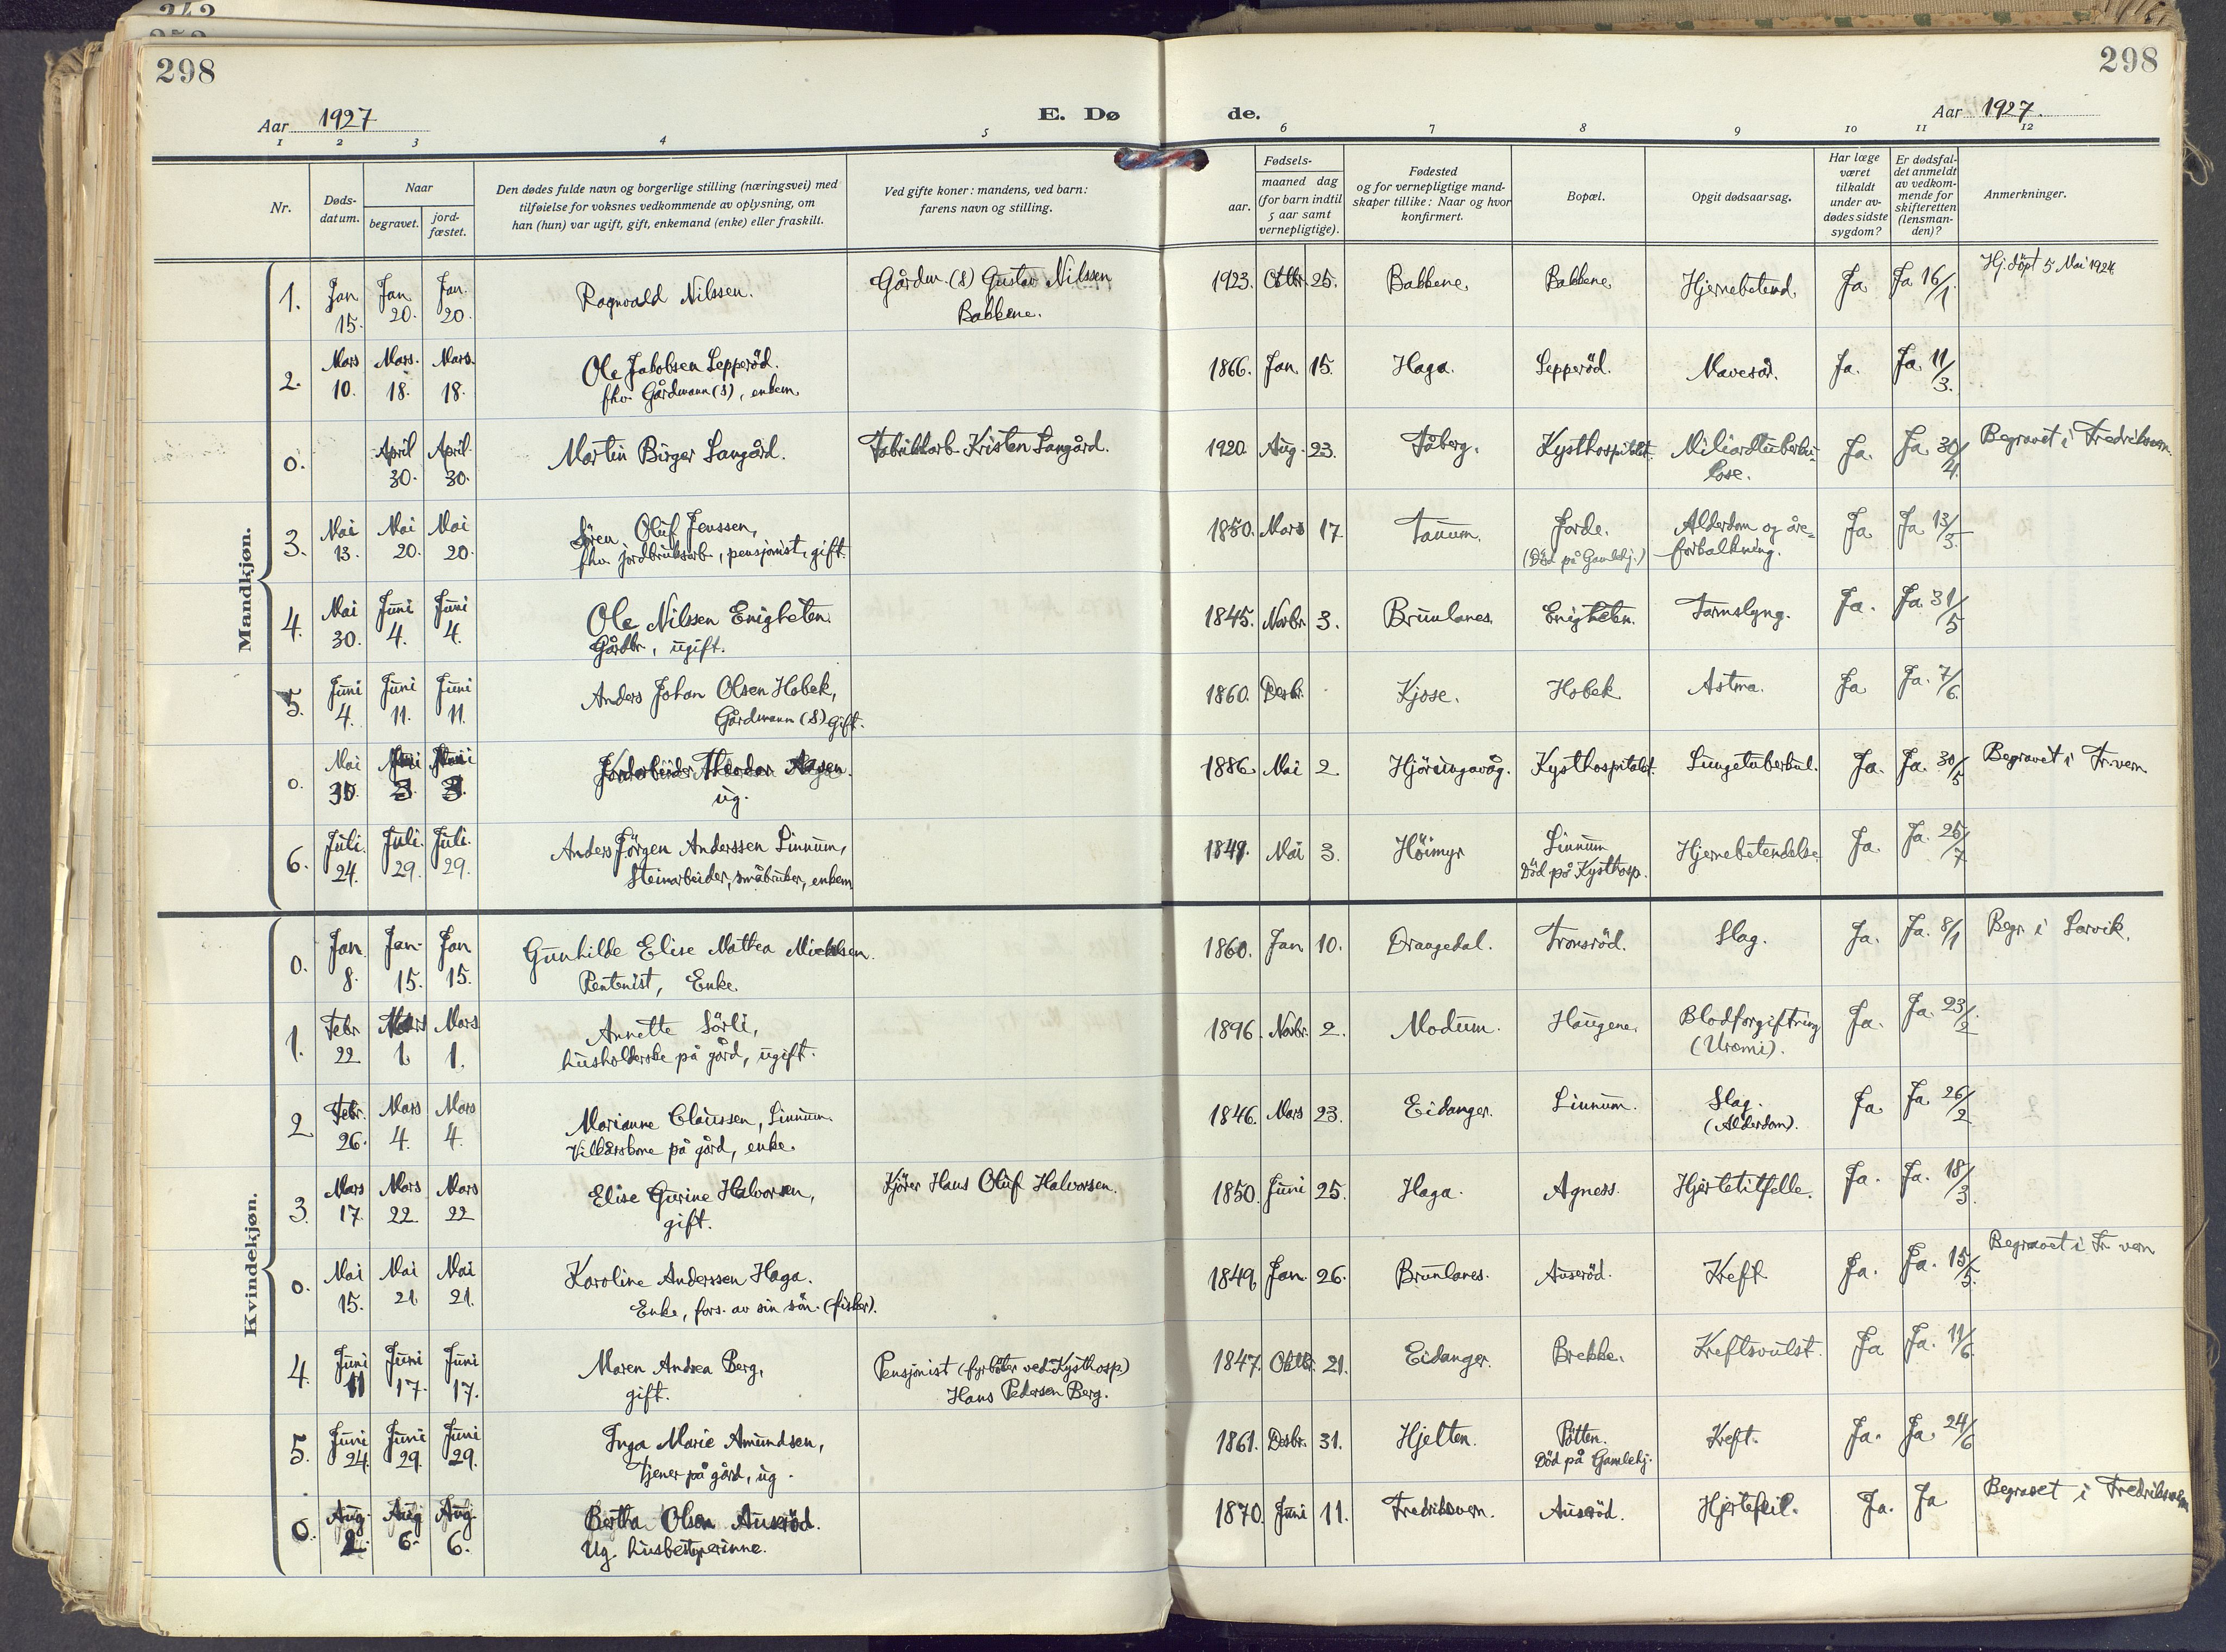 242
252
298
298
Aar 1927
E. Dø
de.
Aar 1927.
1 2 3 4 5 6 7 8 9 10 11 12
Nr.
Døds-
datum.
Naar
begravet.
jord-
fæstet.
Den dødes fulde navn og borgerlige stilling (næringsvei) med
tilføielse for voksnes vedkommende av oplysning, om
han (hun) var ugift, gift, enkemand (enke) eller fraskilt.
Ved gifte koner: mandens, ved barn:
farens navn og stilling.
Fødsels-
aar.
maaned dag
(for barn indtil
5 aar samt
vernepligtige).
Fødested
og for vernepligtige mand-
skaper tillike: Naar og hvor
konfirmert.
Bopæl.
Opgit dødsaarsag.
Har læge
været
tilkaldt
under av-
dødes sidste
sygdom?
Er dødsfal-
det anmeldt
av vedkom-
mende for
skifteretten
(lensman-
den)?
Anmerkninger.
Mandkjøn.
1. Jan 15. Jan 20. Jan. 20. Ragnvald Nilssen. Gårdm. (S) Gustav Nilssen
Bakkene.
1923. Oktbr. 25. Bakkene. Bakkene. Hjernebetend. Ja Ja 16/1. Hj. döpt 5 Mai 1924.
2. Mars 10. Mars. 18. Mars. 18. Ole Jakobsen Lepperöd.
fhv. Gårdmann (S), enkem.
1866. Jan. 15. Haga. Lepperöd. Mavesår. Ja. Ja. 11/3.
0. April 30. April. 30. Martin Birger Langård. Fabrikkarb. Kristen Langård.
1920. Aug. 23. Fåberg. Kysthospitalet. Miliærtuberku-
lose. Ja. Ja. 30/4. Begravet i Fredriksvern.
3. Mai 13. Mai 20. Mai 20. Sören Oluf Jenssen,
fhv. jordbruksarb., pensjonist, gift.
1850. Mars 17. Tanum. Jorde.
(Död på Gamlehj.) Alderdom og åre-
forkalkning. Ja Ja 13/5.
4. Mai 30. Juni 4. Juni 4. Ole Nilssen Enigheten.
Gårdbr., ugift.
1845. Novbr. 3. Brunlanes. Enigheten. Tarmslyng. Ja. Ja. 31/5
5. Juni 4. Juni 11. Juni 11. Anders Johan Olsen Hobek,
Gårdmann (S) gift.
1860. Desbr. Kjose. Hobek Astma. Ja Ja. 7/6.
0. Mai 30. Juni 3. Juni 3. Jordarbeider Theodor Aasen.
ug.
1886. Mai 2. Hjöringavåg. Kysthospitalet. Lungetuberkul. Ja. Ja. 30/5 Begravet i Fr.vern
6. Juli. 24. Juli. 29. Juli. 29. Anders Jörgen Anderssen Linnum,
Steinarbeider, småbruker, enkem.
1849. Mai 3. Höimyr Linnum
Död på Kysthosp. Hjernebetendelse. Ja. Ja. 25/7
Kvindekjøn.
0. Jan. 8. Jan. 15. Jan 15. Gunhilde Elise Mathea Mickelsen.
Rentenist, Enke.
1860. Jan 10. Drangedal. Tronsröd. Slag. Ja. Ja. 8/1 Begr. i Larvik.
1. Febr 22 Mars 1. Mars 1. Annette Sörli,
husholderske på gård, ugift.
1896. Novbr. 2. Modum. Haugene. Blodforgiftning
(Uremi). Ja. Ja. 23/2.
2 Febr. 26. Mars 4. Mars 4. Marianne Claussen, Linnum.
Vilkårskone på gård, enke.
1846. Mars 23. Eidanger. Linnum. Slag.
(Alderdom). Ja Ja 26/2
3. Mars 17. Mars 22. Mars 22 Elise Gurine Halvorsen,
gift. Kjörer Hans Oluf Halvorsen.
1850. Juni 25. Haga. Agness. Hjertetilfelle. Ja. Ja. 18/3.
0. Mai 15. Mai 21 Mai 21. Karoline Anderssen Haga.
Enke, fors. av sin sön. (fisker).
1849. Jan. 26. Brunlanes. Auseröd. Kreft Ja. Ja. 15/5. Begravet i Fr vern
4. Juni 11 Juni 17. Juni 17. Maren Andrea Berg,
gift. Pensjonist (fyrböter ved Kysthosp.)
Hans Pedersen Berg.
1847. Oktbr. 21. Eidanger. Brekke. Kreftsvulst. Ja Ja. 11/6.
5. Juni 24. Juni 29. Juni 29. Inga Marie Amundsen,
tjener på gård, ug.
1861. Desbr. 31. Hjelten. Pötten.
Död på Gamlehj. Kreft. Ja. Ja. 24/6
0. Aug. 2. Aug 6. Aug. 6. Bertha Olsen Auseröd.
Ug. husbestyrerinne.
1870. Juni 11. Fredriksvern. Auseröd. Hjertefeil. Ja. Ja Begravet i Fredriksvern